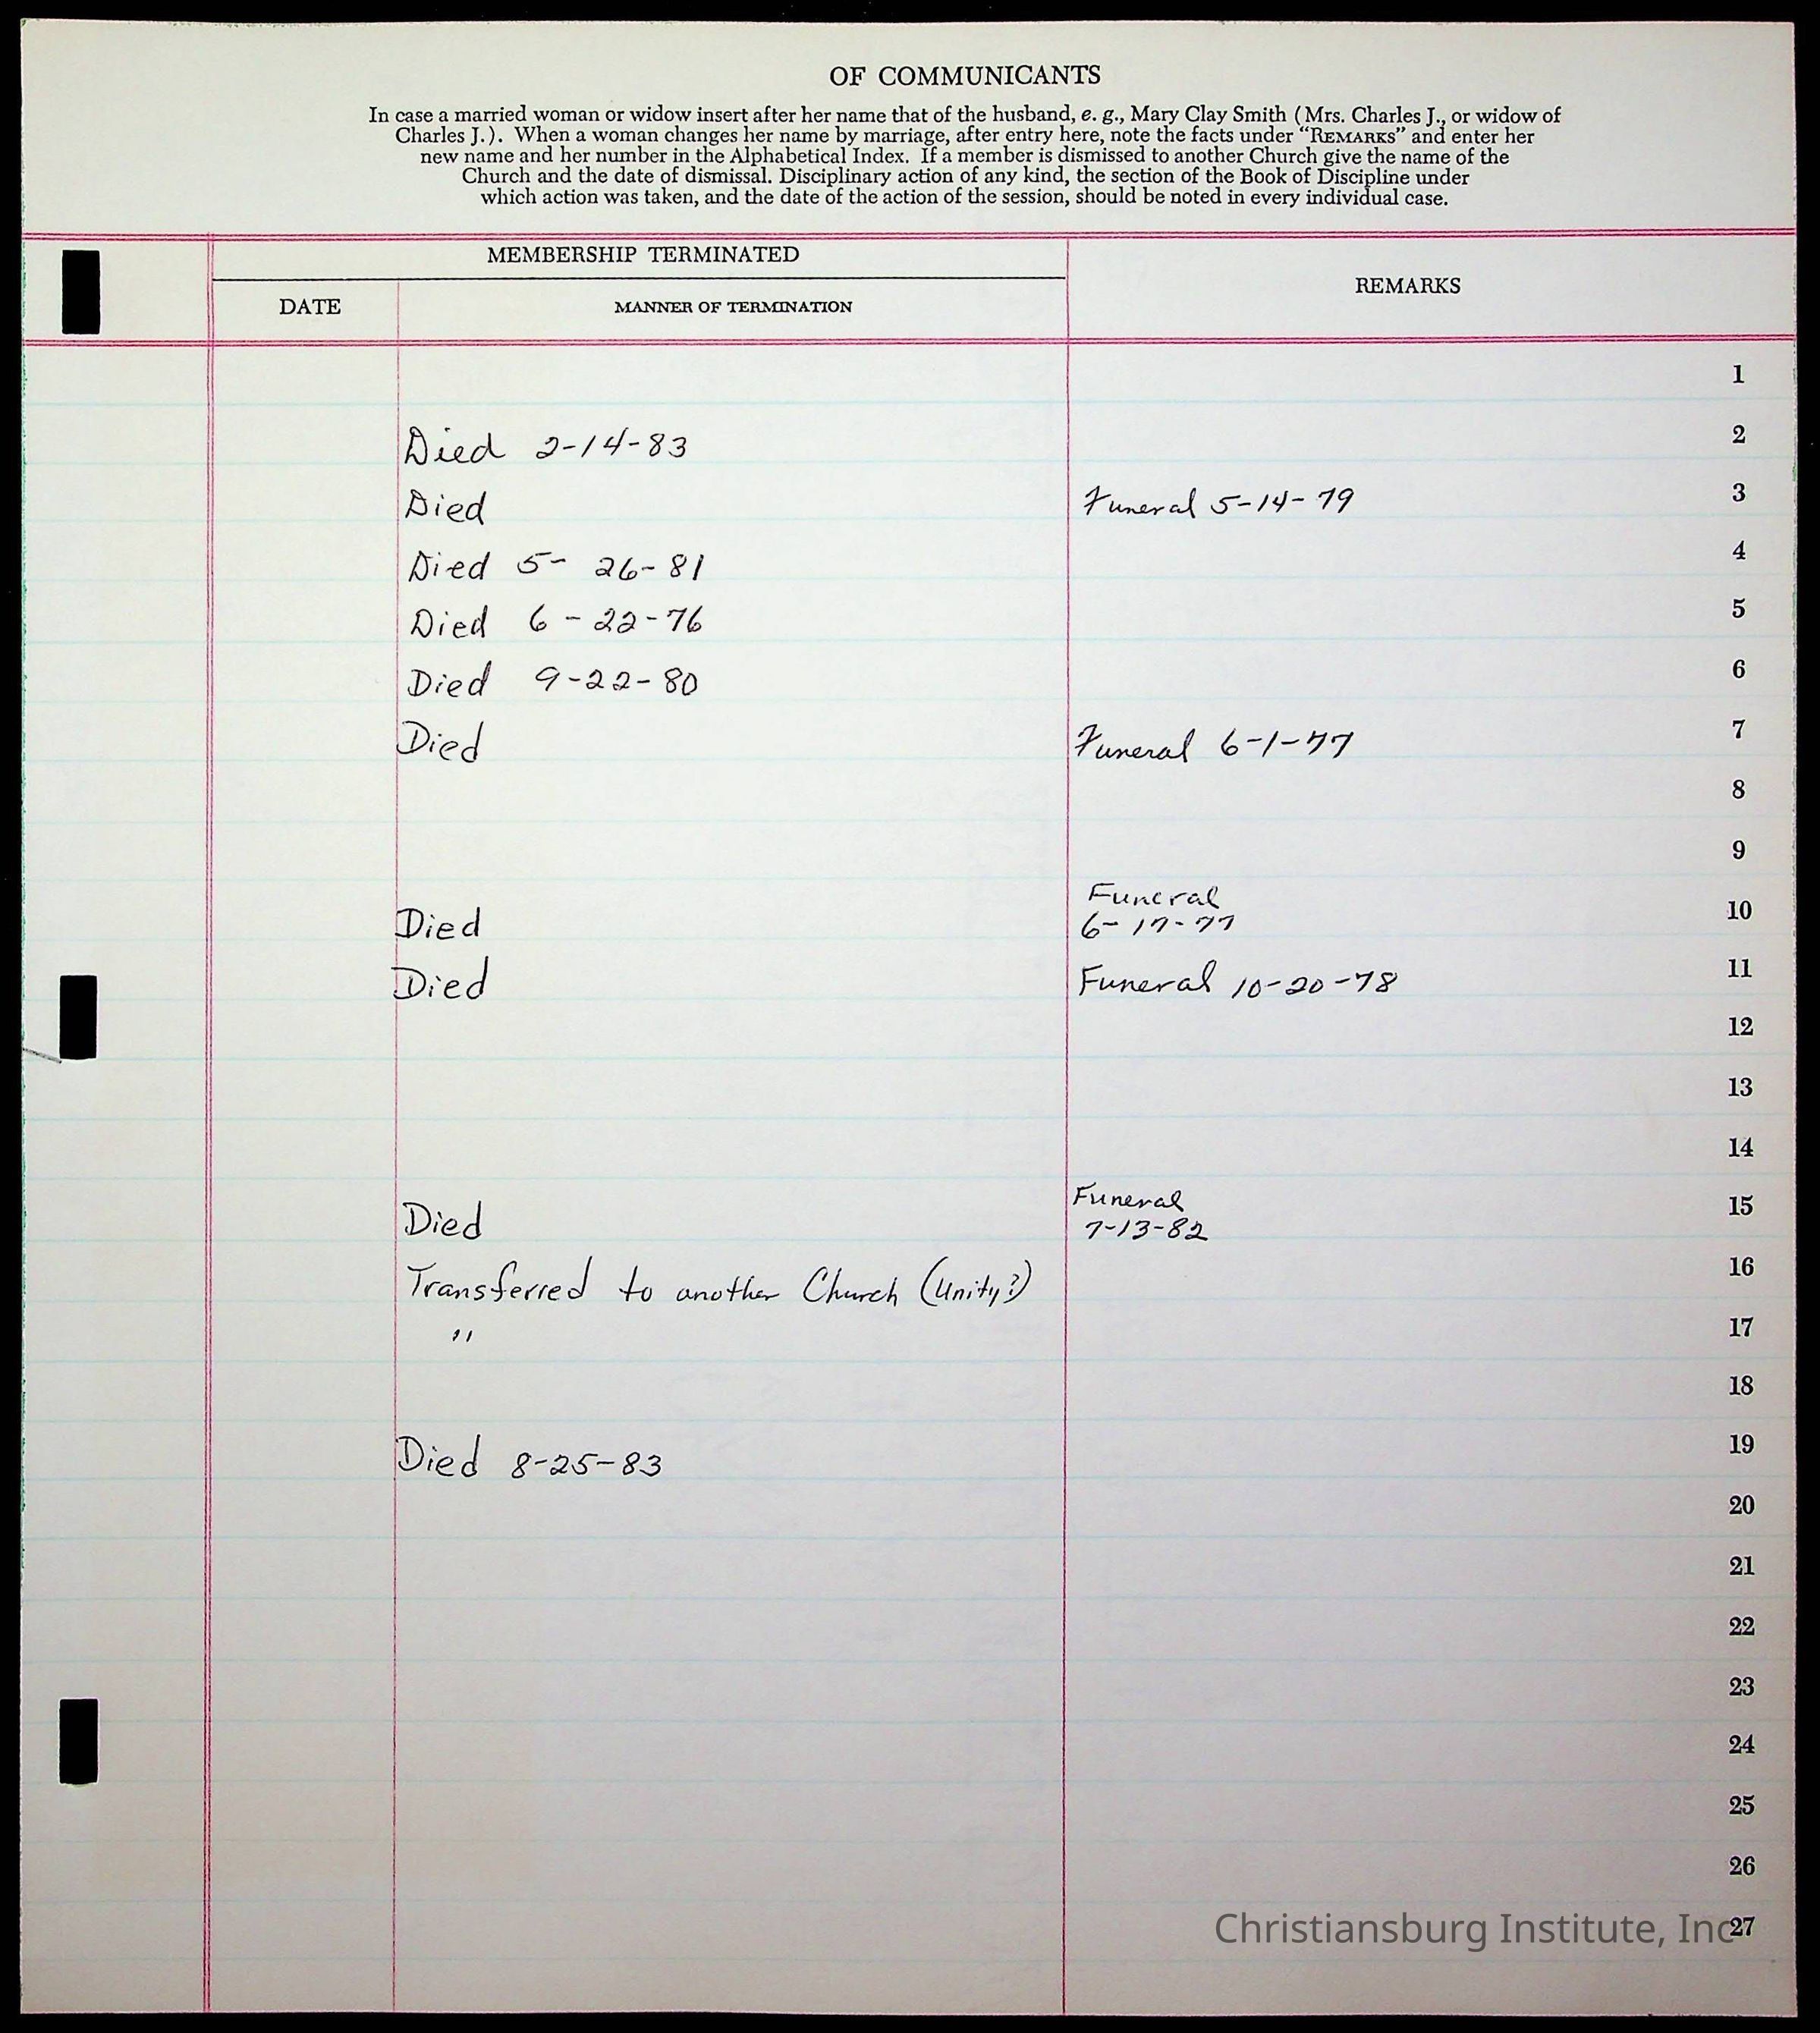 OF COMMUNICANTS
In case a married woman or widow insert after her name that of the husband, e. g., Mary Clay Smith (Mrs. Charles J., or widow of
Charles J.). When a woman changes her name by marriage, after entry here, note the facts under “REMARKS” and enter her
new name and her number in the Alphabetical Index. If a member is dismissed to another Church give the name of the
Church and the date of dismissal. Disciplinary action of any kind, the section of the Book of Discipline under
which action was taken, and the date of the action of the session, should be noted in every individual case.
MEMBERSHIP TERMINATED
REMARKS
DATE MANNER OF TERMINATION
1
Died 2-14-83 2
Died Funeral 5-14-79 3
Died 5- 26-81 4
Died 6-22-76 5
Died 9-22-80 6
Died Funeral 6-1-77 7
8
9
Funeral
Died 6-17-77 10
Died Funeral 10-20-78 11
12
13
14
Funeral
Died 7-13-82 15
Transferred to another Church (Unity?) 16
" 17
18
Died 8-25-83 19
20
21
22
23
24
25
26
Christiansburg Institute, Inc 27